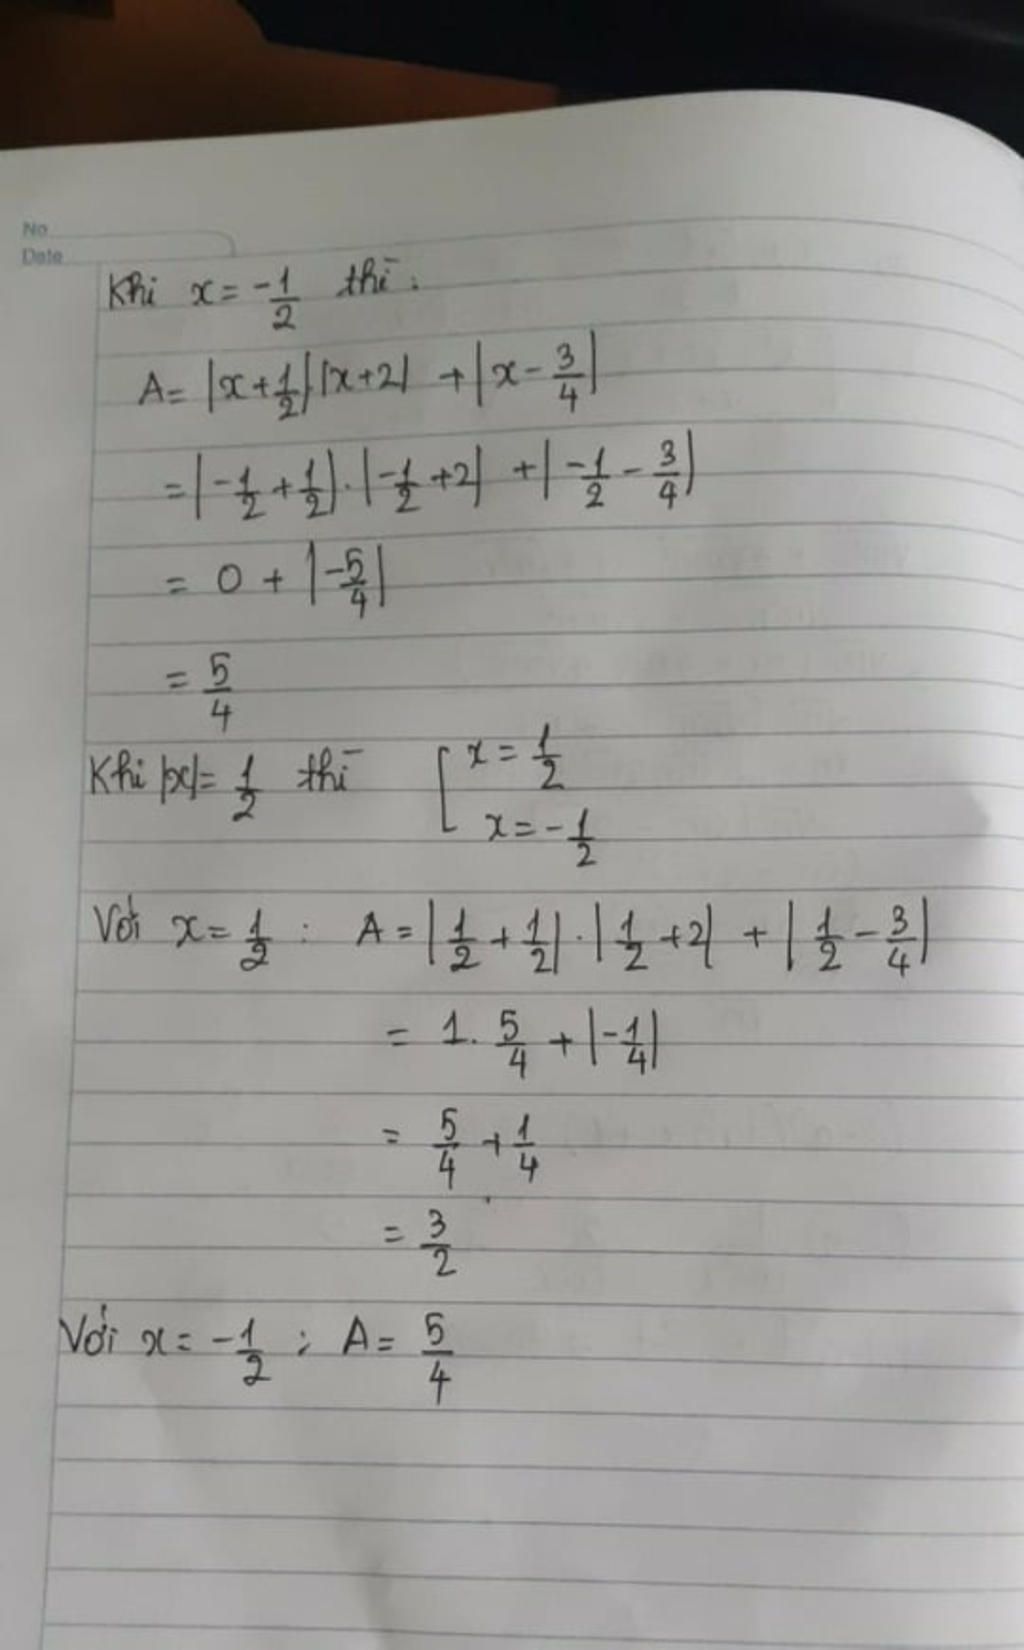 No
Date
Khi x = -1/2 thì:
A = |x + 1/2|.|x+2| + |x - 3/4|
= |-1/2 + 1/2|.|-1/2 + 2| + |-1/2 - 3/4|
= 0 + |-5/4|
= 5/4
Khi |x| = 1/2 thì [ x = 1/2
x = -1/2
Với x = 1/2 : A = |1/2 + 1/2|.|1/2 + 2| + |1/2 - 3/4|
= 1. 5/4 + |-1/4|
= 5/4 + 1/4
= 3/2
Với x = -1/2 ; A = 5/4